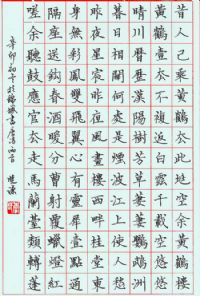 昔人已乘黃鶴去此地空餘黃鶴樓
黃鶴一去不復返白雲千載空悠悠
晴川歷歷漢陽樹芳草萋萋鸚鵡洲
日暮鄉關何處是煙波江上使人愁
昨夜星辰昨夜風畫樓西畔桂堂東
身無彩鳳雙飛翼心有靈犀一點通
隔座送鉤春酒暖分曹射覆蠟燈紅
嗟余聽鼓應官去走馬蘭臺類轉蓬
辛卯初夏於錦城書唐詩兩首